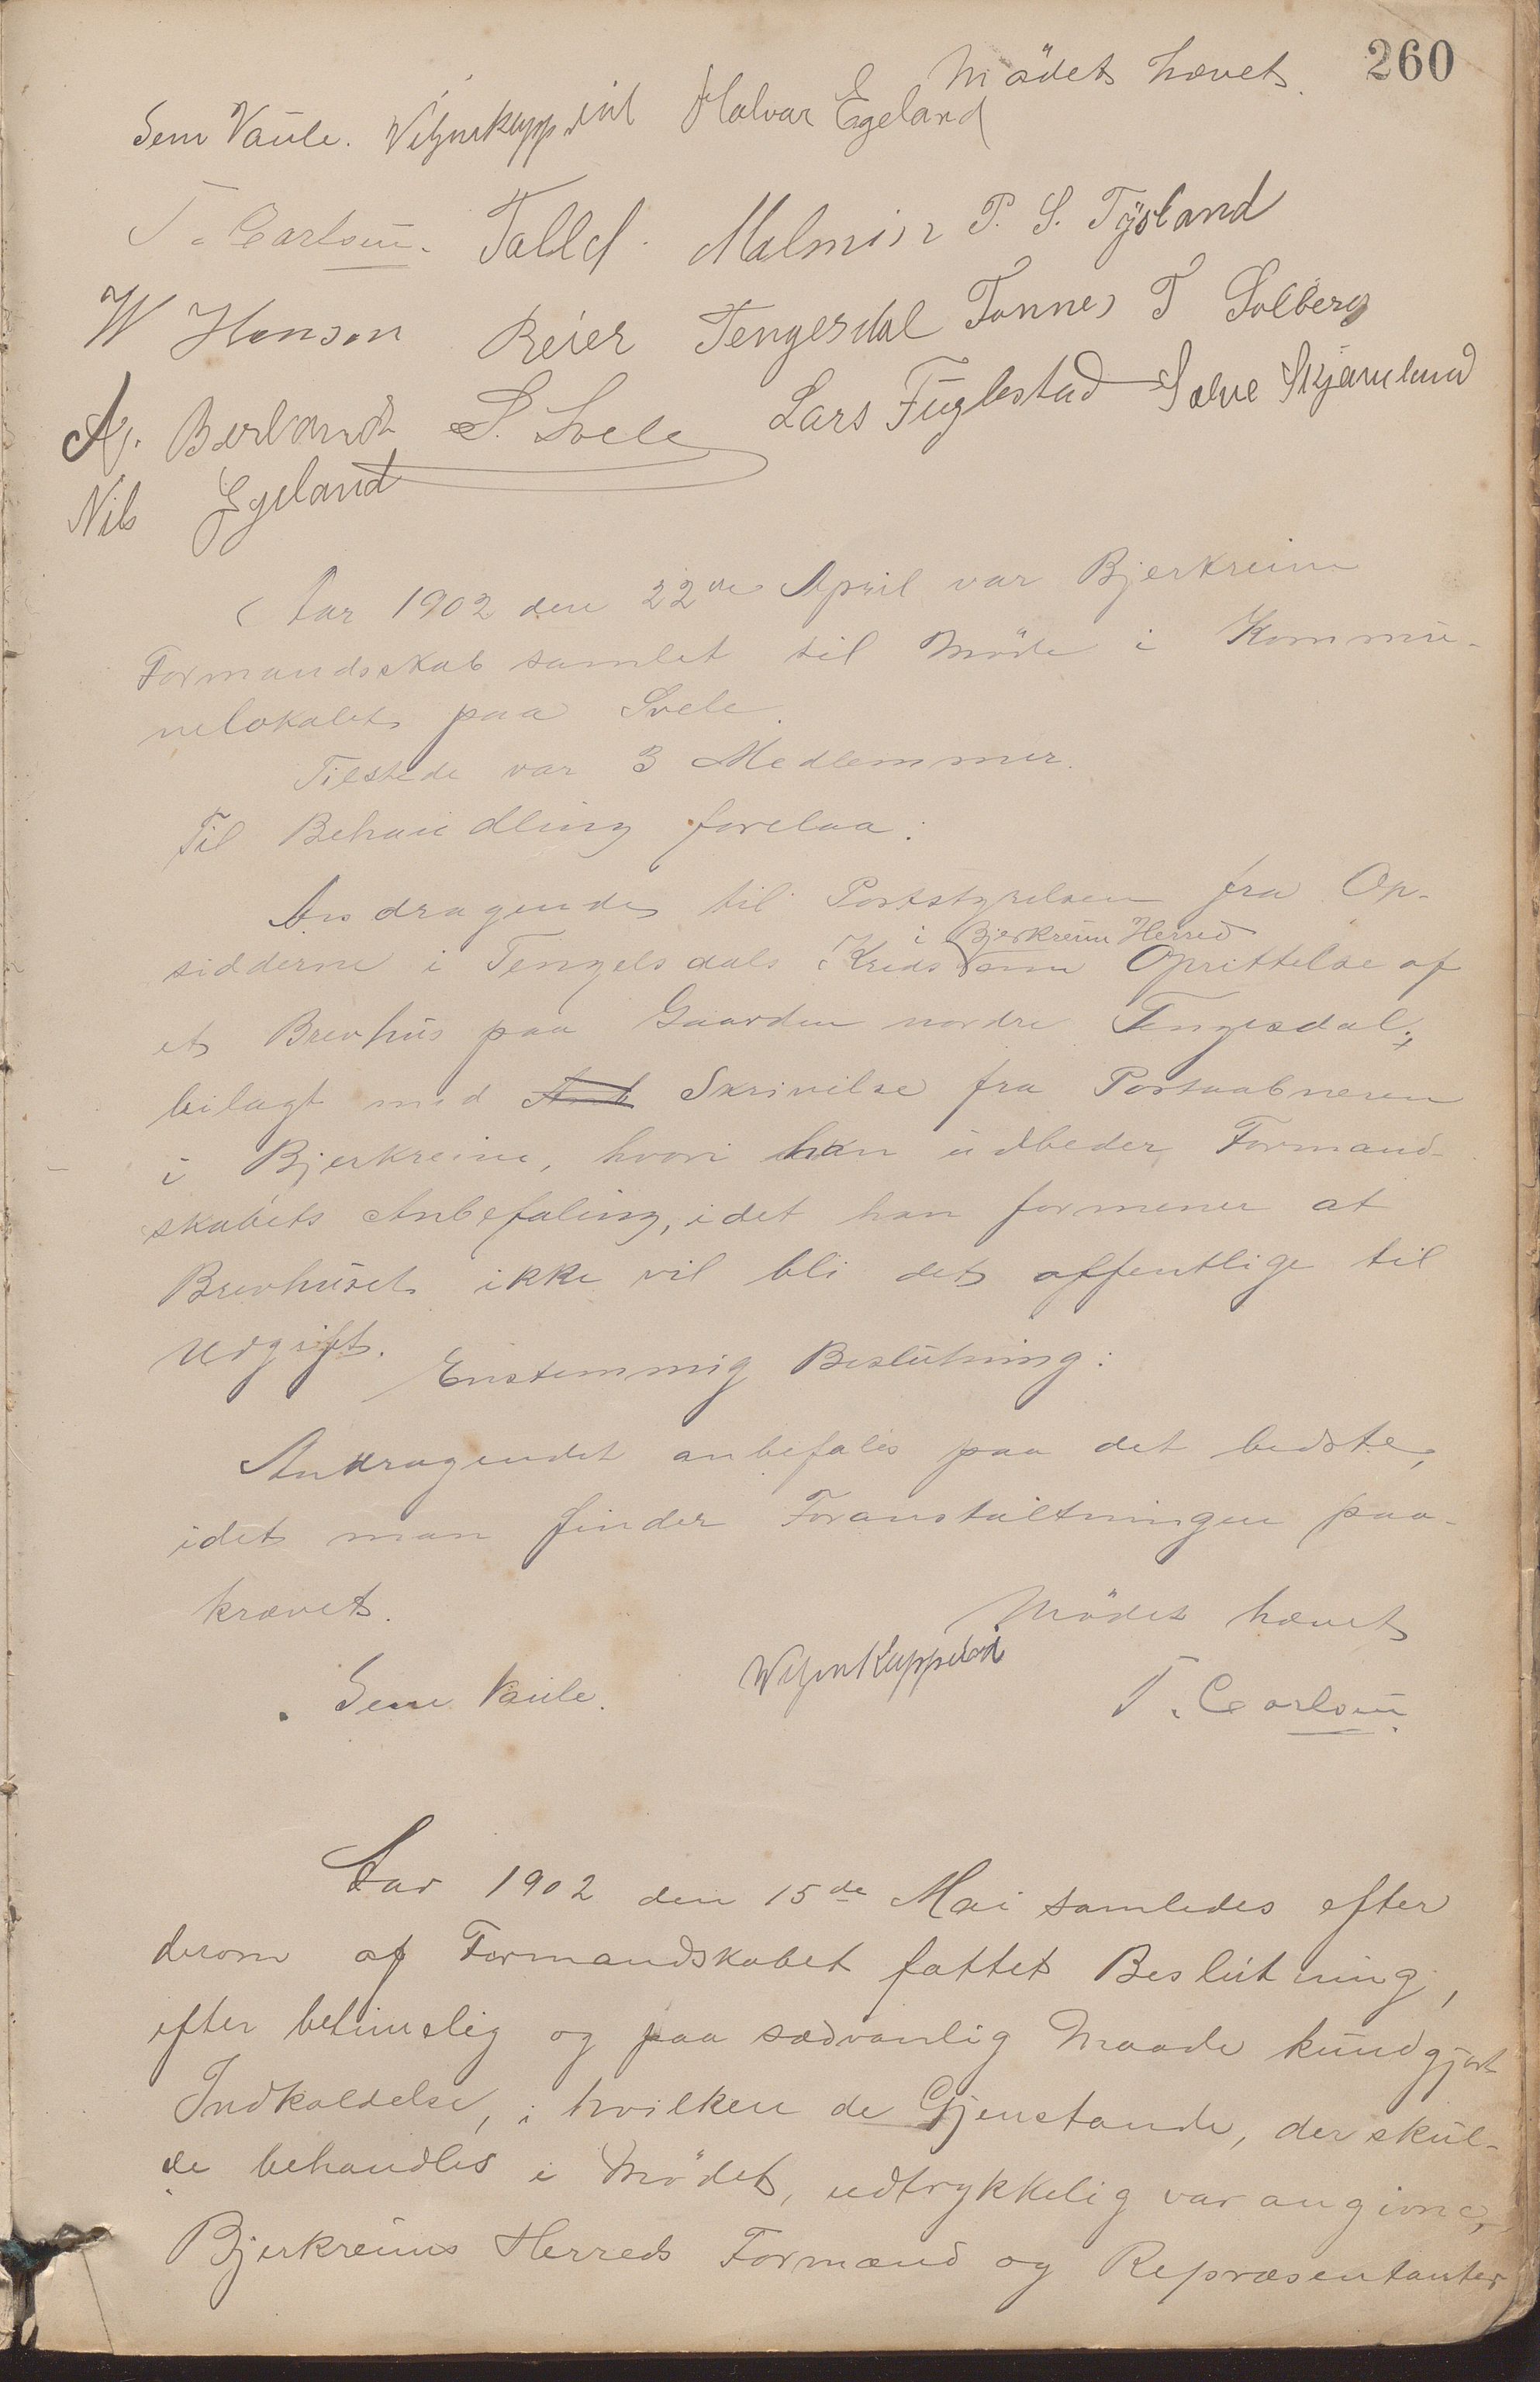 Mödet hævet. 260
Sem Vaule. Halvar Egeland
T. Carlsen. Talld. Malmin P. S. Tÿsland
W Hanson Reier Tengesdal Tonnes T Solberg
A. Berland S. Svele Lars Fuglestad Salve Skjæveland
Nils Egeland
Aar 1902 den 22de April var Bjerkreim
Formandsskab samlet til Möde i Kommu-
nelokalet paa Svele.
Tilstede var 3 Medlemmer.
Til Behandling forelaa:
Andragende til Poststyrelsen fra Op-
i Bjerkreim Herred
sidderne i Tengelsdals Kreds om Oprettelse af
et Brevhus paa Gaarden nordre Tengesdal,
bilagt med Skrivelse fra Postaabneren
i Bjerkreim, hvori han udbeder Formand-
skabets Anbefaling, idet han formener at
Brevhuset ikke vil bli det offentlige til
Udgift.
Enstemmig Beslutning:
Andragendet anbefales paa det bedste,
idet man finder Foranstaltningen paa-
krævet.
Mödet hævet
Sem Vaule. T. Carlsen.
Aar 1902 den 15de Mai samledes efter
derom af Formandskabet fattet Beslutning,
efter betimelig og paa sædvanlig Maade kundgjort
Indkaldelse, i hvilken de Gjenstande, der skul-
de behandles i Mödet, udtrykkelig var angivne,
Bjerkreims Herreds Formænd og Repræsentanter